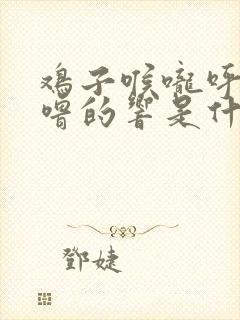 鸡子喉咙呼
噜的响是什
鄧婕